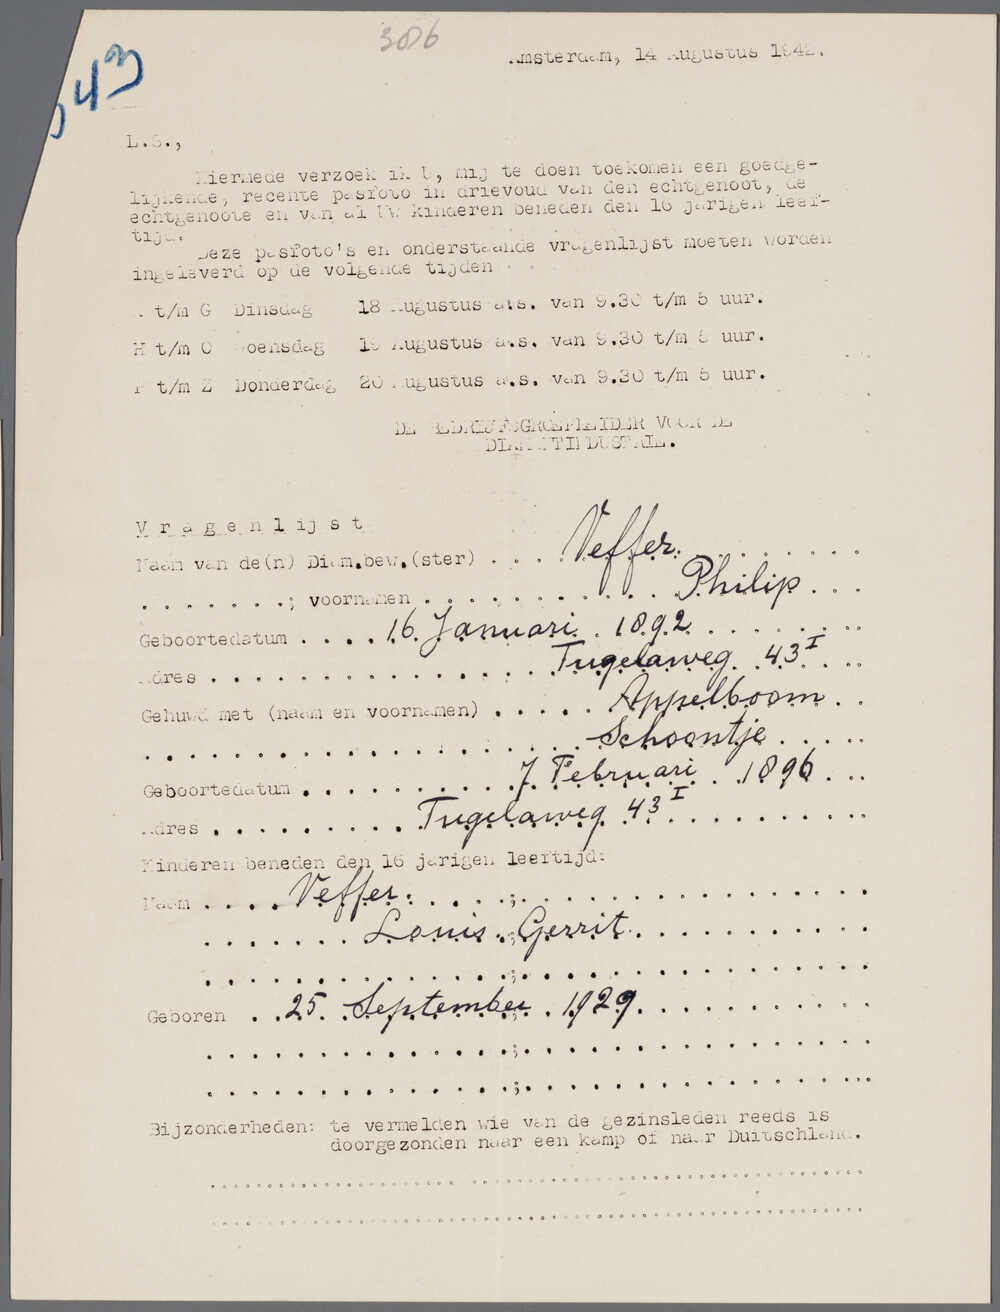 3086
43
Amsterdam, 14 Augustus 1942.
L.S.,
Hiermede verzoek ik U, mij te doen toekomen een goedge-
lijkende, recente pasfoto in drievoud van den echtgenoot, de
echtgenoote en van al Uw kinderen beneden den 16 jarigen leef-
tijd.
Deze pasfoto's en onderstaande vragenlijst moeten worden
ingeleverd op de volgende tijden
A t/m G Dinsdag 18 Augustus a.s. van 9.30 t/m 5 uur.
H t/m O Woensdag 19 Augustus a.s. van 9.30 t/m 5 uur.
P t/m Z Donderdag 20 Augustus a.s. van 9.30 t/m 5 uur.
DE BEDRIJFSGROEPLEIDER VOOR DE
DIAMANTINDUSTRIE.
Vragenlijst
Naam van de(n) Diam.bew.(ster) . . . Veffer. . . . . . . . .
. . . . . . .; voornamen . . . . . . . . . . . Philip . . .
Geboortedatum . . . . 16 Januari 1892 . . . . . . . .
Adres . . . . . . . . . . . . . . . . Tugelaweg 43 I . . .
Gehuwd met (naam en voornamen) . . . . . Appelboom . .
. . . . . . . . . . . . . . . . . . . Schoontje . . . . .
Geboortedatum . . . . . . . . . . 7 Februari . 1896 . . .
Adres . . . . . . . . . Tugelaweg 43 I . . . . . . . . .
Kinderen beneden den 16 jarigen leeftijd:
Naam . . . . Veffer. . . . . ; . . . . . . . . . . . . . . .
. . . . . . . Louis . ; Gerrit . . . . . . . . . . . .
. . . . . . . . . . . . . . . ; . . . . . . . . . . . . . . .
Geboren . . 25 September ; . 1929 . . . . . . . . . .
. . . . . . . . . . . . . . . ; . . . . . . . . . . . . . . .
. . . . . . . . . . . . . . . ; . . . . . . . . . . . . . . .
Bijzonderheden: te vermelden wie van de gezinsleden reeds is
doorgezonden naar een kamp of naar Duitschland.